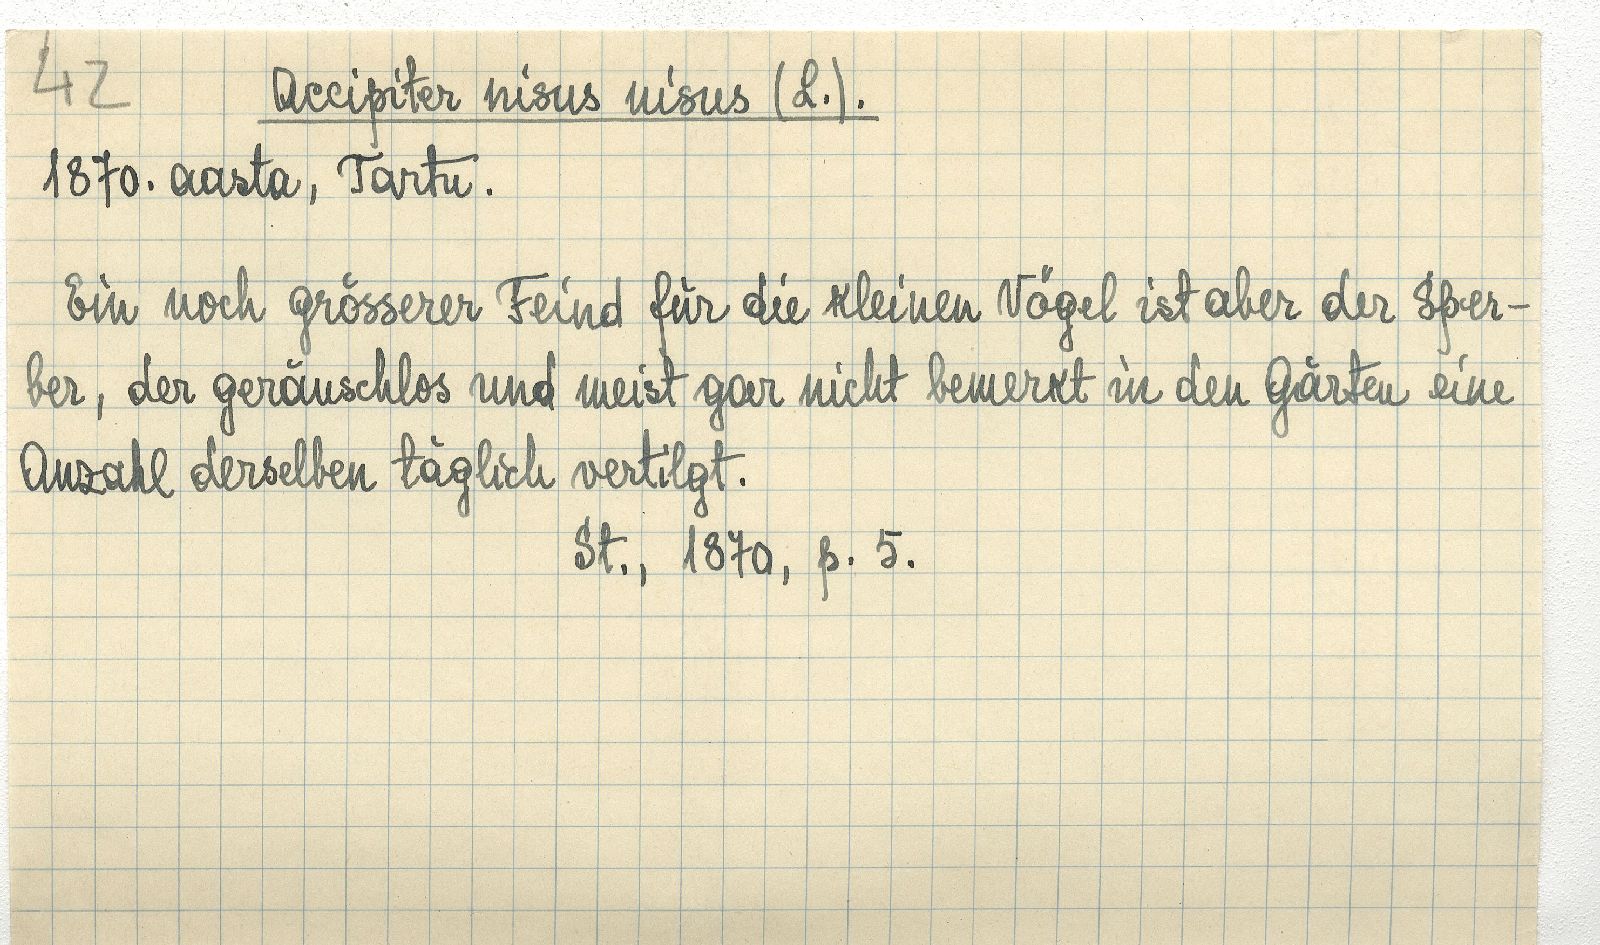 42
Accipiter nisus nisus (L.).
1870. aasta, Tartu.
Ein noch grösserer Feind für die kleinen Vögel ist aber der Sper-
ber, der geräuschlos und meist gar nicht bemerkt in den Gärten eine
Anzahl derselben täglich vertilgt.
St., 1870, p. 5.